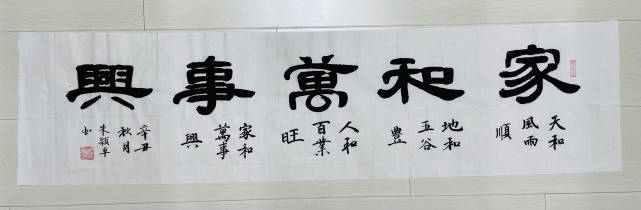 家和萬事興
天和
風雨
順
地和
五谷
豐
人和
百業
旺
家和
萬事
興
辛丑
秋月
朱穎卓
书